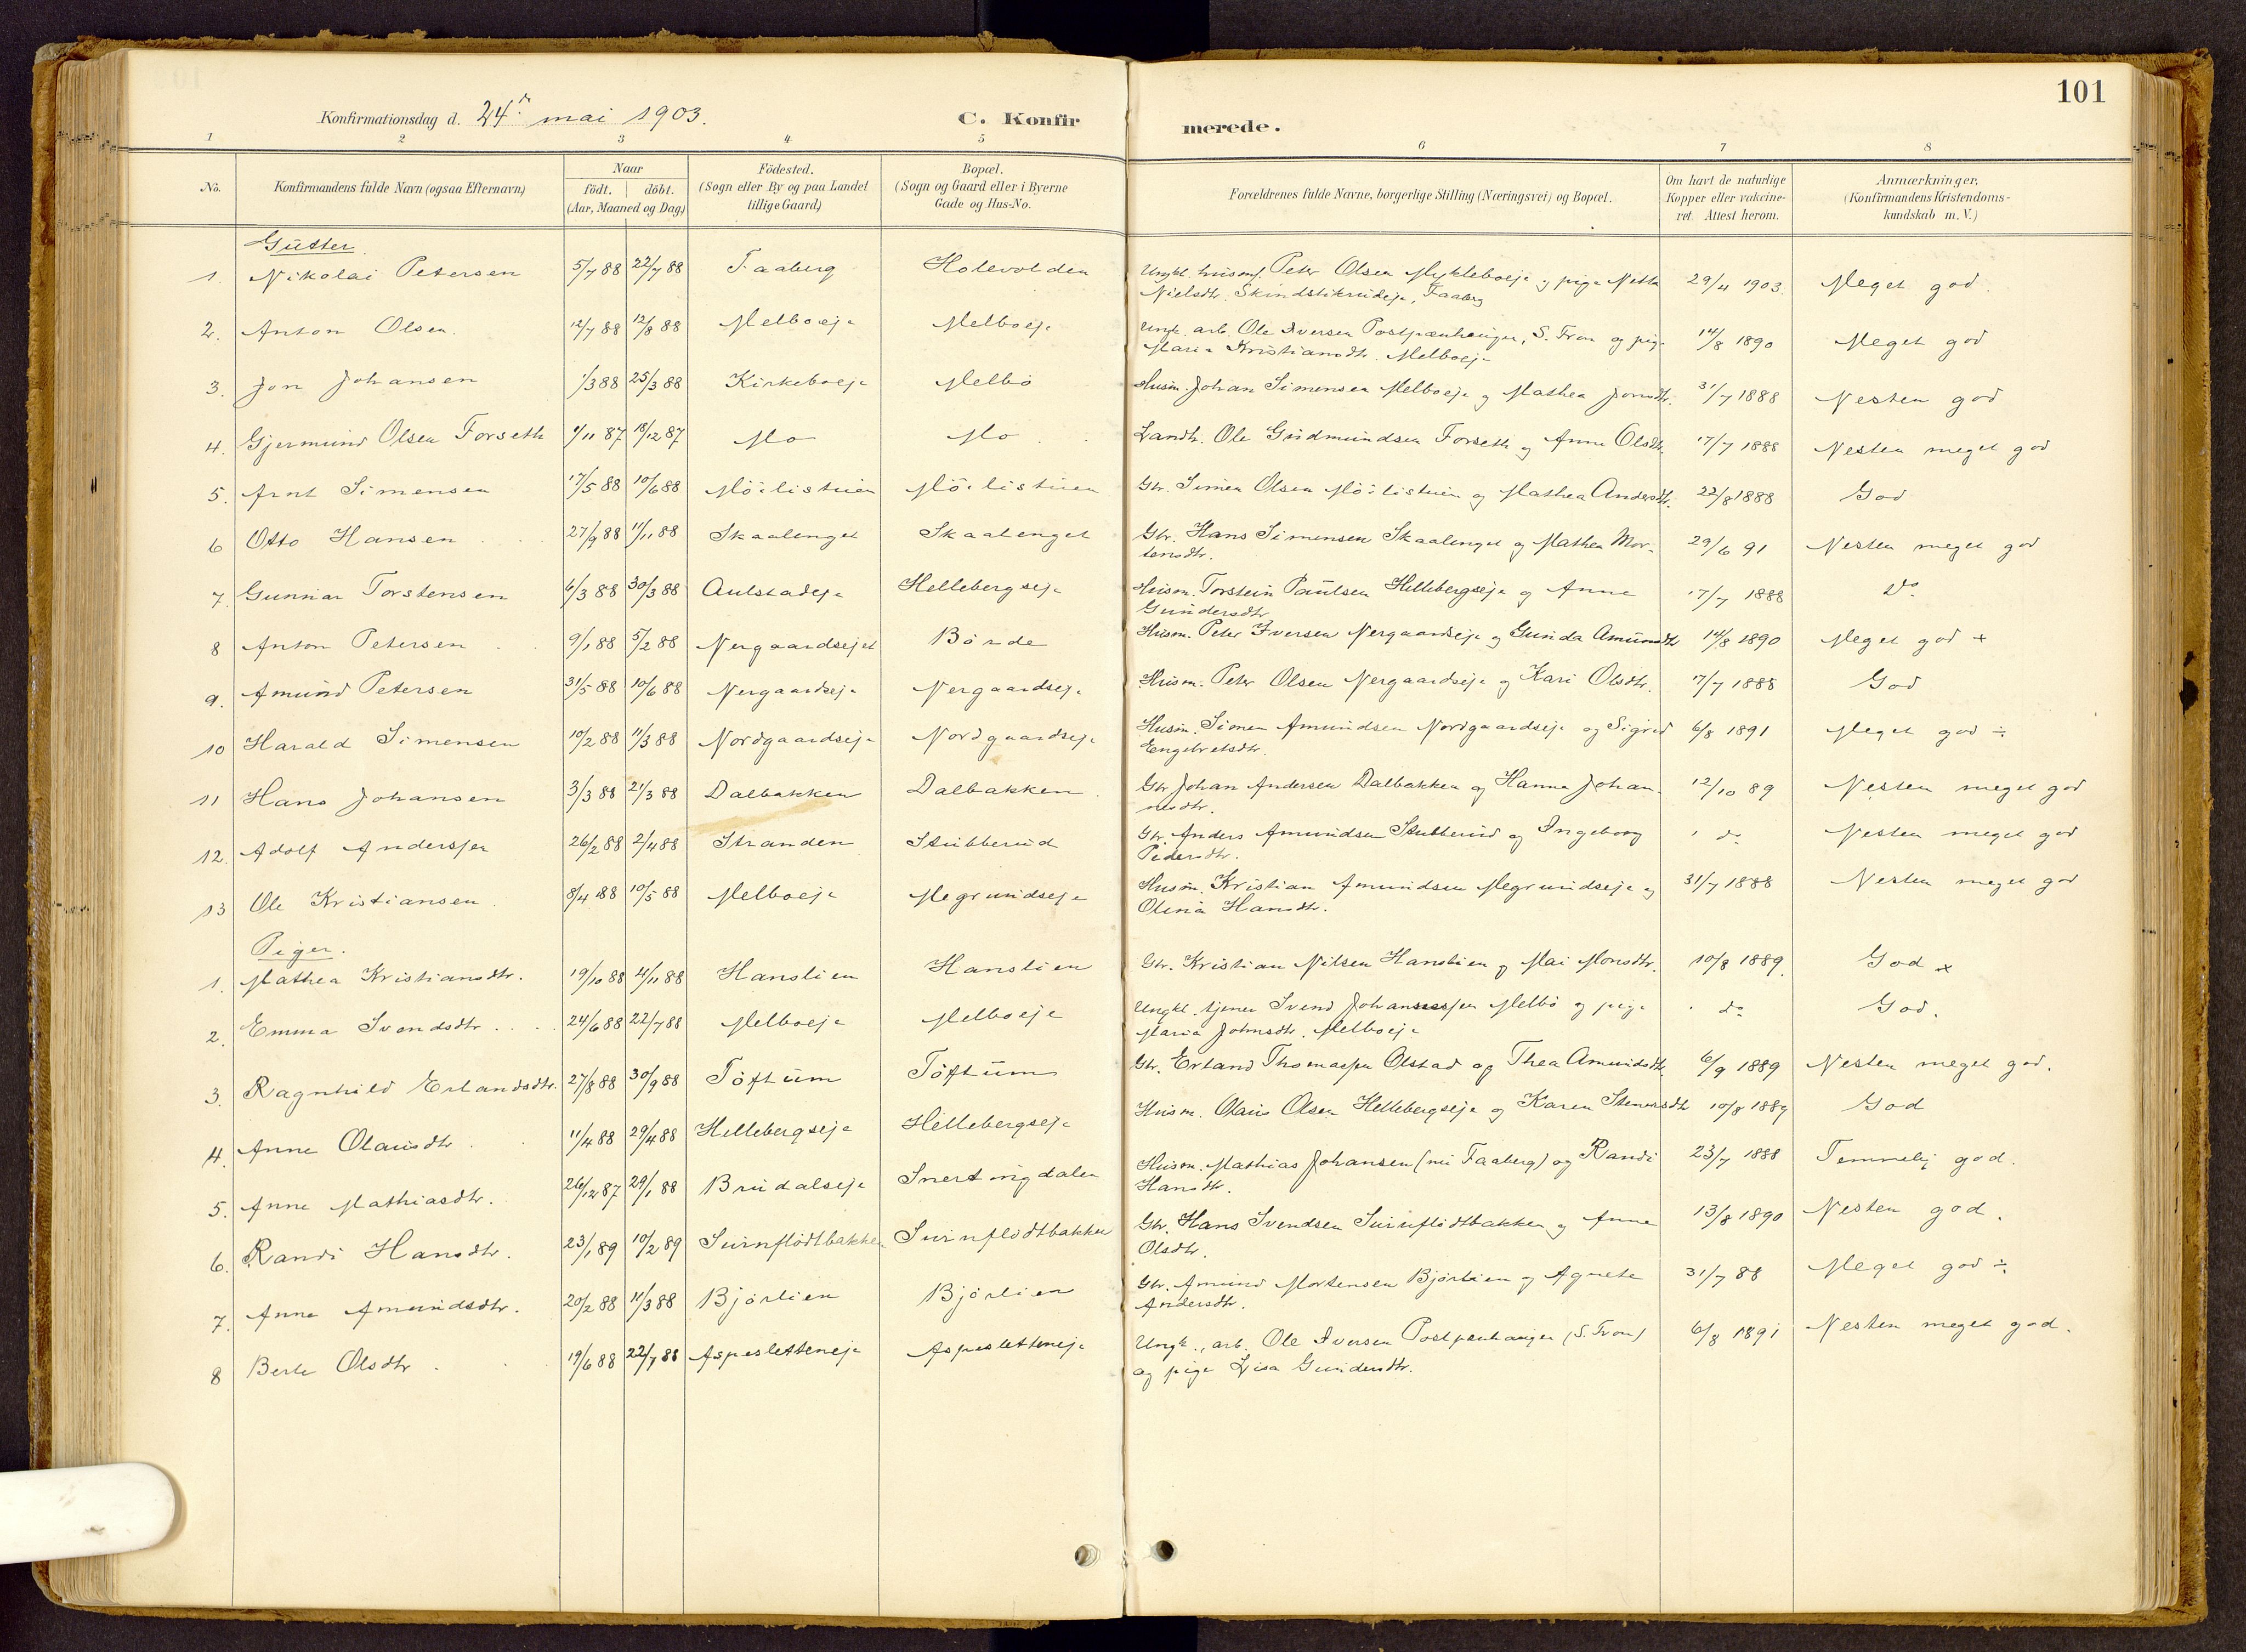 101
Konfirmationsdag d. 24de mai 1903.
C. Konfirmerede.
1 2 3 4 5 6 7 8
No.
Konfirmandens fulde Navn (ogsaa Efternavn)
Naar
födt. | döbt.
(Aar, Maaned og Dag)
Födested.
(Sogn eller By og paa Landet
tillige Gaard)
Bopæl.
(Sogn og Gaard eller i Byerne
Gade og Hus-No.
Forældrenes fulde Navne, borgerlige Stilling (Næringsvei) og Bopæl.
Om havt de naturlige
Kopper eller vakcine-
ret. Attest herom.
Anmærkninger.
(Konfirmandens Kristendoms-
kundskab m. V.)
Gutter.
1. Nikolai Petersen 5/7 88 22/7 88 Faaberg Holevolden Ungkl. husmf. Peter Olsen Mykleboeje og pige Netta 29/4 1903. Meget god.
Nielsdtr. Skindstikrudeje, Faaberg
2. Anton Olsen. 12/7 88 12/8 88 Melboeje Melboeje Ungk. arb. Ole Iversen Postpænhaugen, S. Fron og pige 14/8 1890 Meget god
Maria Kristiansdtr. Melboeje
3. Jon Johansen 1/3 88 25/3 88 Kirkeboeje Melbö Husm. Johan Simensen Melboeje og Mathea Jonsdtr. 31/7 1888 Nesten god
4. Gjermund Olsen Forseth 1/11 87 18/12 87 Mo Mo Landh. Ole Gudmundsen Forseth og Anne Olsdtr. 17/7 1888 Nesten meget god
5. Arnt Simensen 17/5 88 10/6 88 Möilistuen Möilistuen Gbr. Simen Olsen Möilistuen og Mathea Andersdtr. 22/8 1888 God
6 Otto Hansen 27/9 88 11/11 88 Skaalenget Skaalenget Gbr. Hans Simensen Skaalenget og Mathea Mor- 29/6 91 Nesten meget god
tensdtr.
7. Gunnar Torstensen 6/3 88 30/3 88 Aulstadeje Hellebergseje Husm. Torstein Paulsen Hellebergseje og Anne 17/7 1888 Do
Gundersdtr.
8 Anton Petersen 9/1 88 5/2 88 Nergaardsejet Börde Husm. Peter Iversen Nergaardseje og Gunda Amundsdtr 14/8 1890 Meget god +
9. Amund Petersen 31/5 88 10/6 88 Nergaardseje Nergaardseje Husm. Peter Olsen Nergaardseje og Kari Olsdtr. 17/7 1888 God
10 Harald Simensen 10/2 88 11/3 88 Nordgaardseje Nordgaardseje Husm. Simen Amundsen Nordgaardseje og Sigrid 6/8 1891 Meget god ÷
Engebretsdtr.
11 Hans Johansen 3/3 88 21/3 88 Dalbakken Dalbakken Gbr Johan Andersen Dalbakken og Hanna Johan- 12/10 89 Nesten meget god
nesdtr.
12. Adolf Andersen 26/2 88 2/4 88 Stranden Stubberud Gbr. Anders Amundsen Stubberud og Ingeborg do Nesten meget god
Pedersdtr.
13 Ole Kristiansen 8/4 88 10/5 88 Melboeje Megrundseje Husm. Kristian Amundsen Megrundseje og 31/7 1888 Nesten meget god
Olina Hansdtr.
Piger.
1. Mathea Kristiansdtr. 19/10 88 4/11 88 Hanslien Hanslien Gbr. Kristian Nilsen Hanslien og Mai Monsdtr. 10/8 1889. God +
2. Emma Svendsdtr. 24/6 88 22/7 88 Melboeje Melboeje Ungkl. tjener Svend Johannessen Melbö og pige do God.
Maria Johnsdtr. Melboeje
3. Ragnhild Erlandsdtr. 27/8 88 30/9 88 Töftum Töftum Gbr. Erland Thomassen Olstad og Thea Amundsdtr. 6/9 1889 Nesten meget god.
4. Anne Olausdtr. 11/4 88 29/4 88 Hellebergseje Hellebergseje Husm. Olaus Olsen Hellebergseje og Karen Stenersdtr 10/8 1889 God
5. Anne Mathiasdtr. 26/12 87 29/1 88 Brudalseje Snertingdalen Husm. Mathias Johansen (nu Faaberg) og Randi 23/7 1888 Temmelig god.
Hansdtr.
6. Randi Hansdtr. 23/1 89 10/2 89 Surnflödtbakken Surnflödtbakken Gbr. Hans Svendsen Surnflödtbakken og Anne 13/8 1890 Nesten god.
Olsdtr.
7. Anne Amundsdtr. 20/2 88 11/3 88 Bjørlien Bjørlien Gbr. Amund Mortensen Bjørlien og Agnete 31/7 88 Meget god ÷
Andersdtr.
8 Berte Olsdtr 19/6 88 22/7 88 Aspesletteneje Aspesletteneje Ungk., arb. Ole Iversen Postpenhaugen (S. Fron) 6/8 1891 Nesten meget god.
og pige Lisa Gundersdtr.